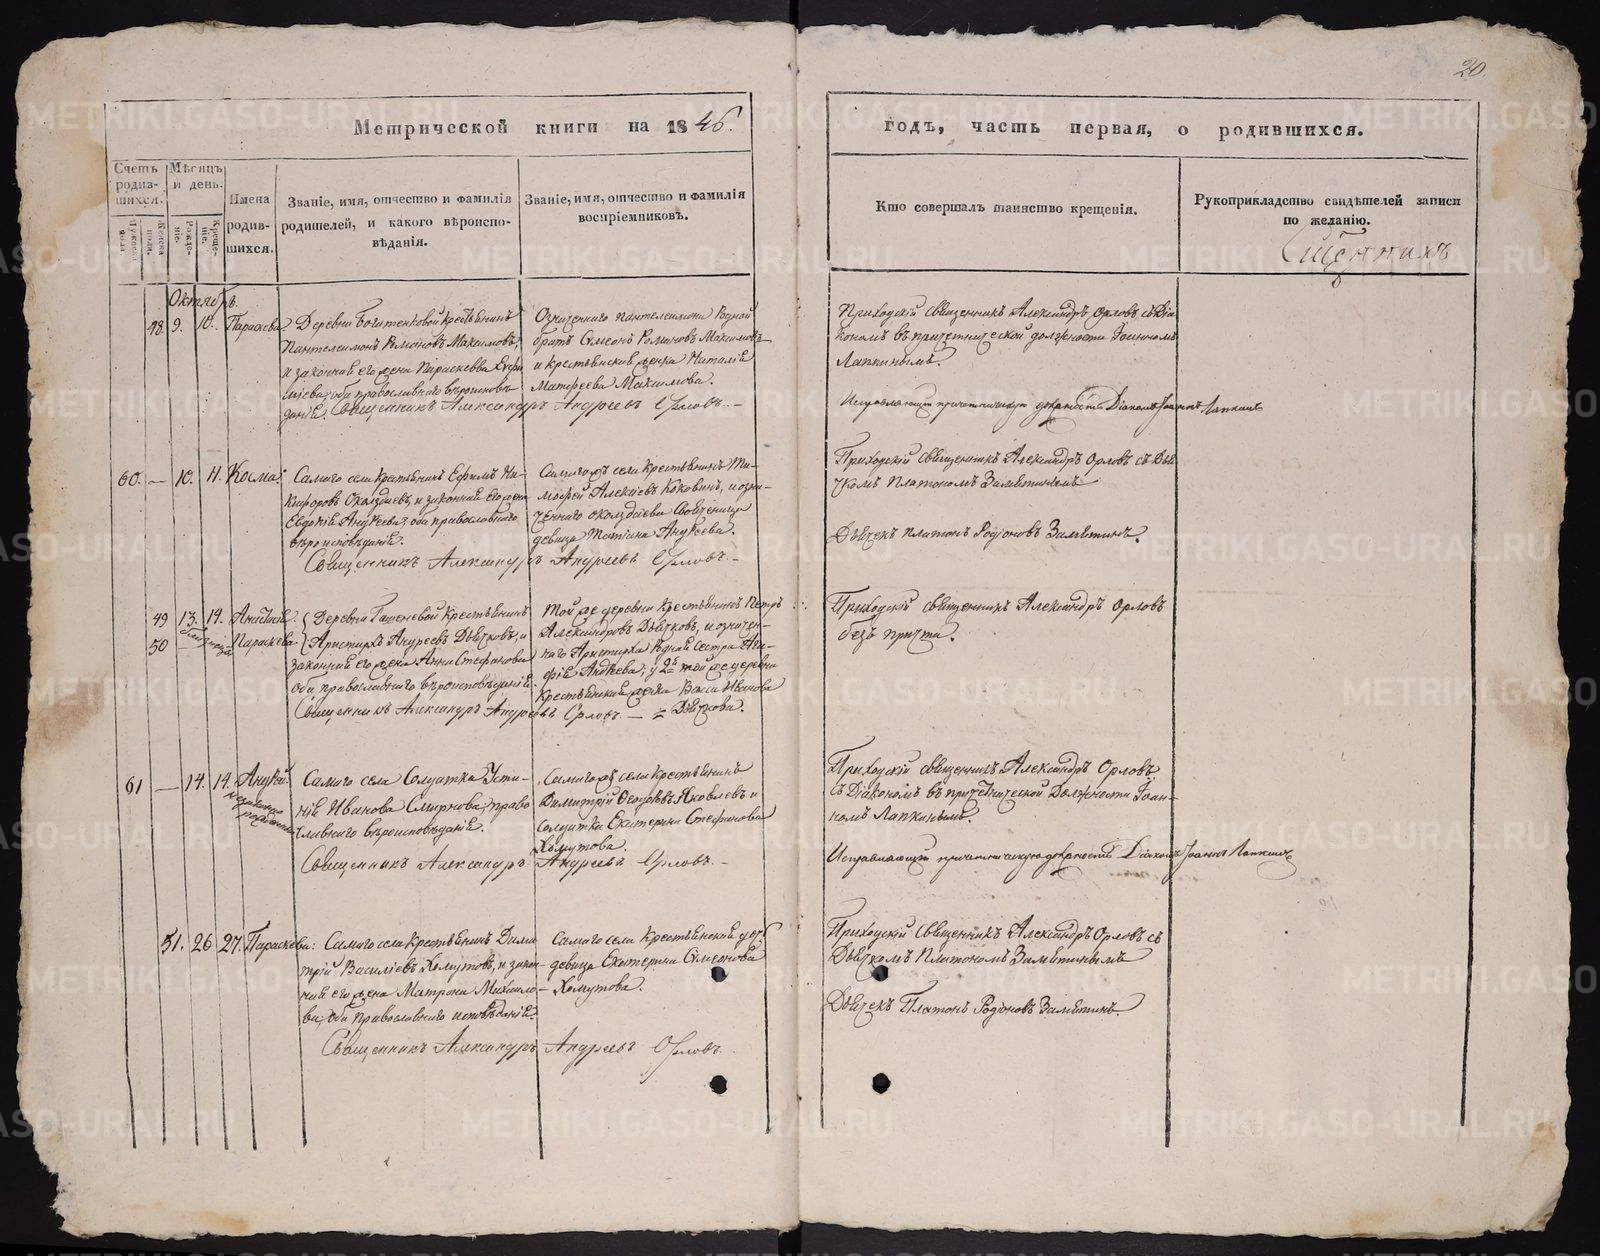 20.
Метрической книги на 1846.
годъ, часть первая, о родившихся.
Счетъ родив-шихся.
Мужеска пола
Женска пола.
Мѣсяцъ и день.
Рожде-нія.
Креще-нія.
Имена родив-шихся.
Званіе, имя, отчество и фамилія родителей, и какого вѣроиспо-вѣданія.
Званіе, имя, отчество и фамилія воспріемниковъ.
Кто совершалъ таинство крещенія.
Рукоприкладство свидѣтелей записи по желанію.
Октябрь.
48. 9. 10. Параскева
Деревни Богатенковой крестьянинъ
Пантелеимонъ Романовъ Максимовъ,
и законная его жена Параскевва Евфи
міева, оба православнаго вѣроисповѣ
данія. Священникъ Александръ Андреевъ Орловъ.
Означеннаго Пантелеимона родной
братъ Симеонъ Романовъ Максимовъ
и крестьянская жена Наталія
Матфеева Максимова.
Приходскій священникъ Александръ Орловъ съ Діа
кономъ въ причетнической должности Іоанномъ
Лапкинымъ.
Исправляющій причетническую должность Діаконъ Іоаннъ Лапкинъ
60. — 10. 11. Косма:
Самаго села крестьянинъ Ефимъ Ни-
кифоровъ, и законная его жена
Евдокія Андреева, оба православнаго
вѣроисповѣданія.
Священникъ Александръ Андреевъ Орловъ.
Самаго жъ села крестьянинъ Ти-
мофей Алексіевъ Коковинъ, и озна-
ченнаго свояченица
девица Татіана Андреева.
Приходскій священникъ Александръ Орловъ съ Дья
чкомъ Платономъ Замятинымъ
Дьячекъ Платонъ Родіоновъ Замятинъ.
49 13. 14. Анастасія.
50 близнецы Параскева
Деревни крестьянинъ
Аристархъ Андреевъ Дьячковъ, и
законная его жена Анна Стефанова
оба православнаго вѣроисповѣданія.
Священникъ Александръ Андреевъ Орловъ.
Той же деревни крестьянинъ Петръ
Александровъ Дьячковъ, и означен-
наго Аристарха родная сестра Ага-
фія Андреева; у 2й той же деревни
крестьянская жена Васса Иванова
Дьячкова.
Приходскій священникъ Александръ Орловъ
безъ причта.
61 — 14. 14. Андрей.
незаконно
рожденный
Самаго села Солдатка Усти-
нія Иванова Смирнова, право
славнаго вѣроисповѣданія.
Священникъ Александръ Андреевъ Орловъ.
Самаго жъ села крестьянинъ
Димитрій Яковлевъ и
солдатка Екатерина Стефанова
Хомутова.
Приходскій священникъ Александръ Орловъ
съ Діакономъ въ причетнической должности Іоан-
номъ Лапкинымъ.
Исправляющій причетническую должность Діаконъ Іоаннъ Лапкинъ
51. 26 27. Параскева:
Самаго села крестьянинъ Дими
трій Василіевъ Хомутовъ, и закон-
ная его жена Матрона Михаило-
ва, оба православнаго исповѣданія.
Священникъ Александръ Андреевъ Орловъ.
Самаго села крестьянская дочь
девица Екатерина Симеонова
Хомутова.
Приходскій священникъ Александръ Орловъ съ
Дьячкомъ Платономъ Замятинымъ
Дьячекъ Платонъ Родіоновъ Замятинъ.
METRIKI.GASO-URAL.RU